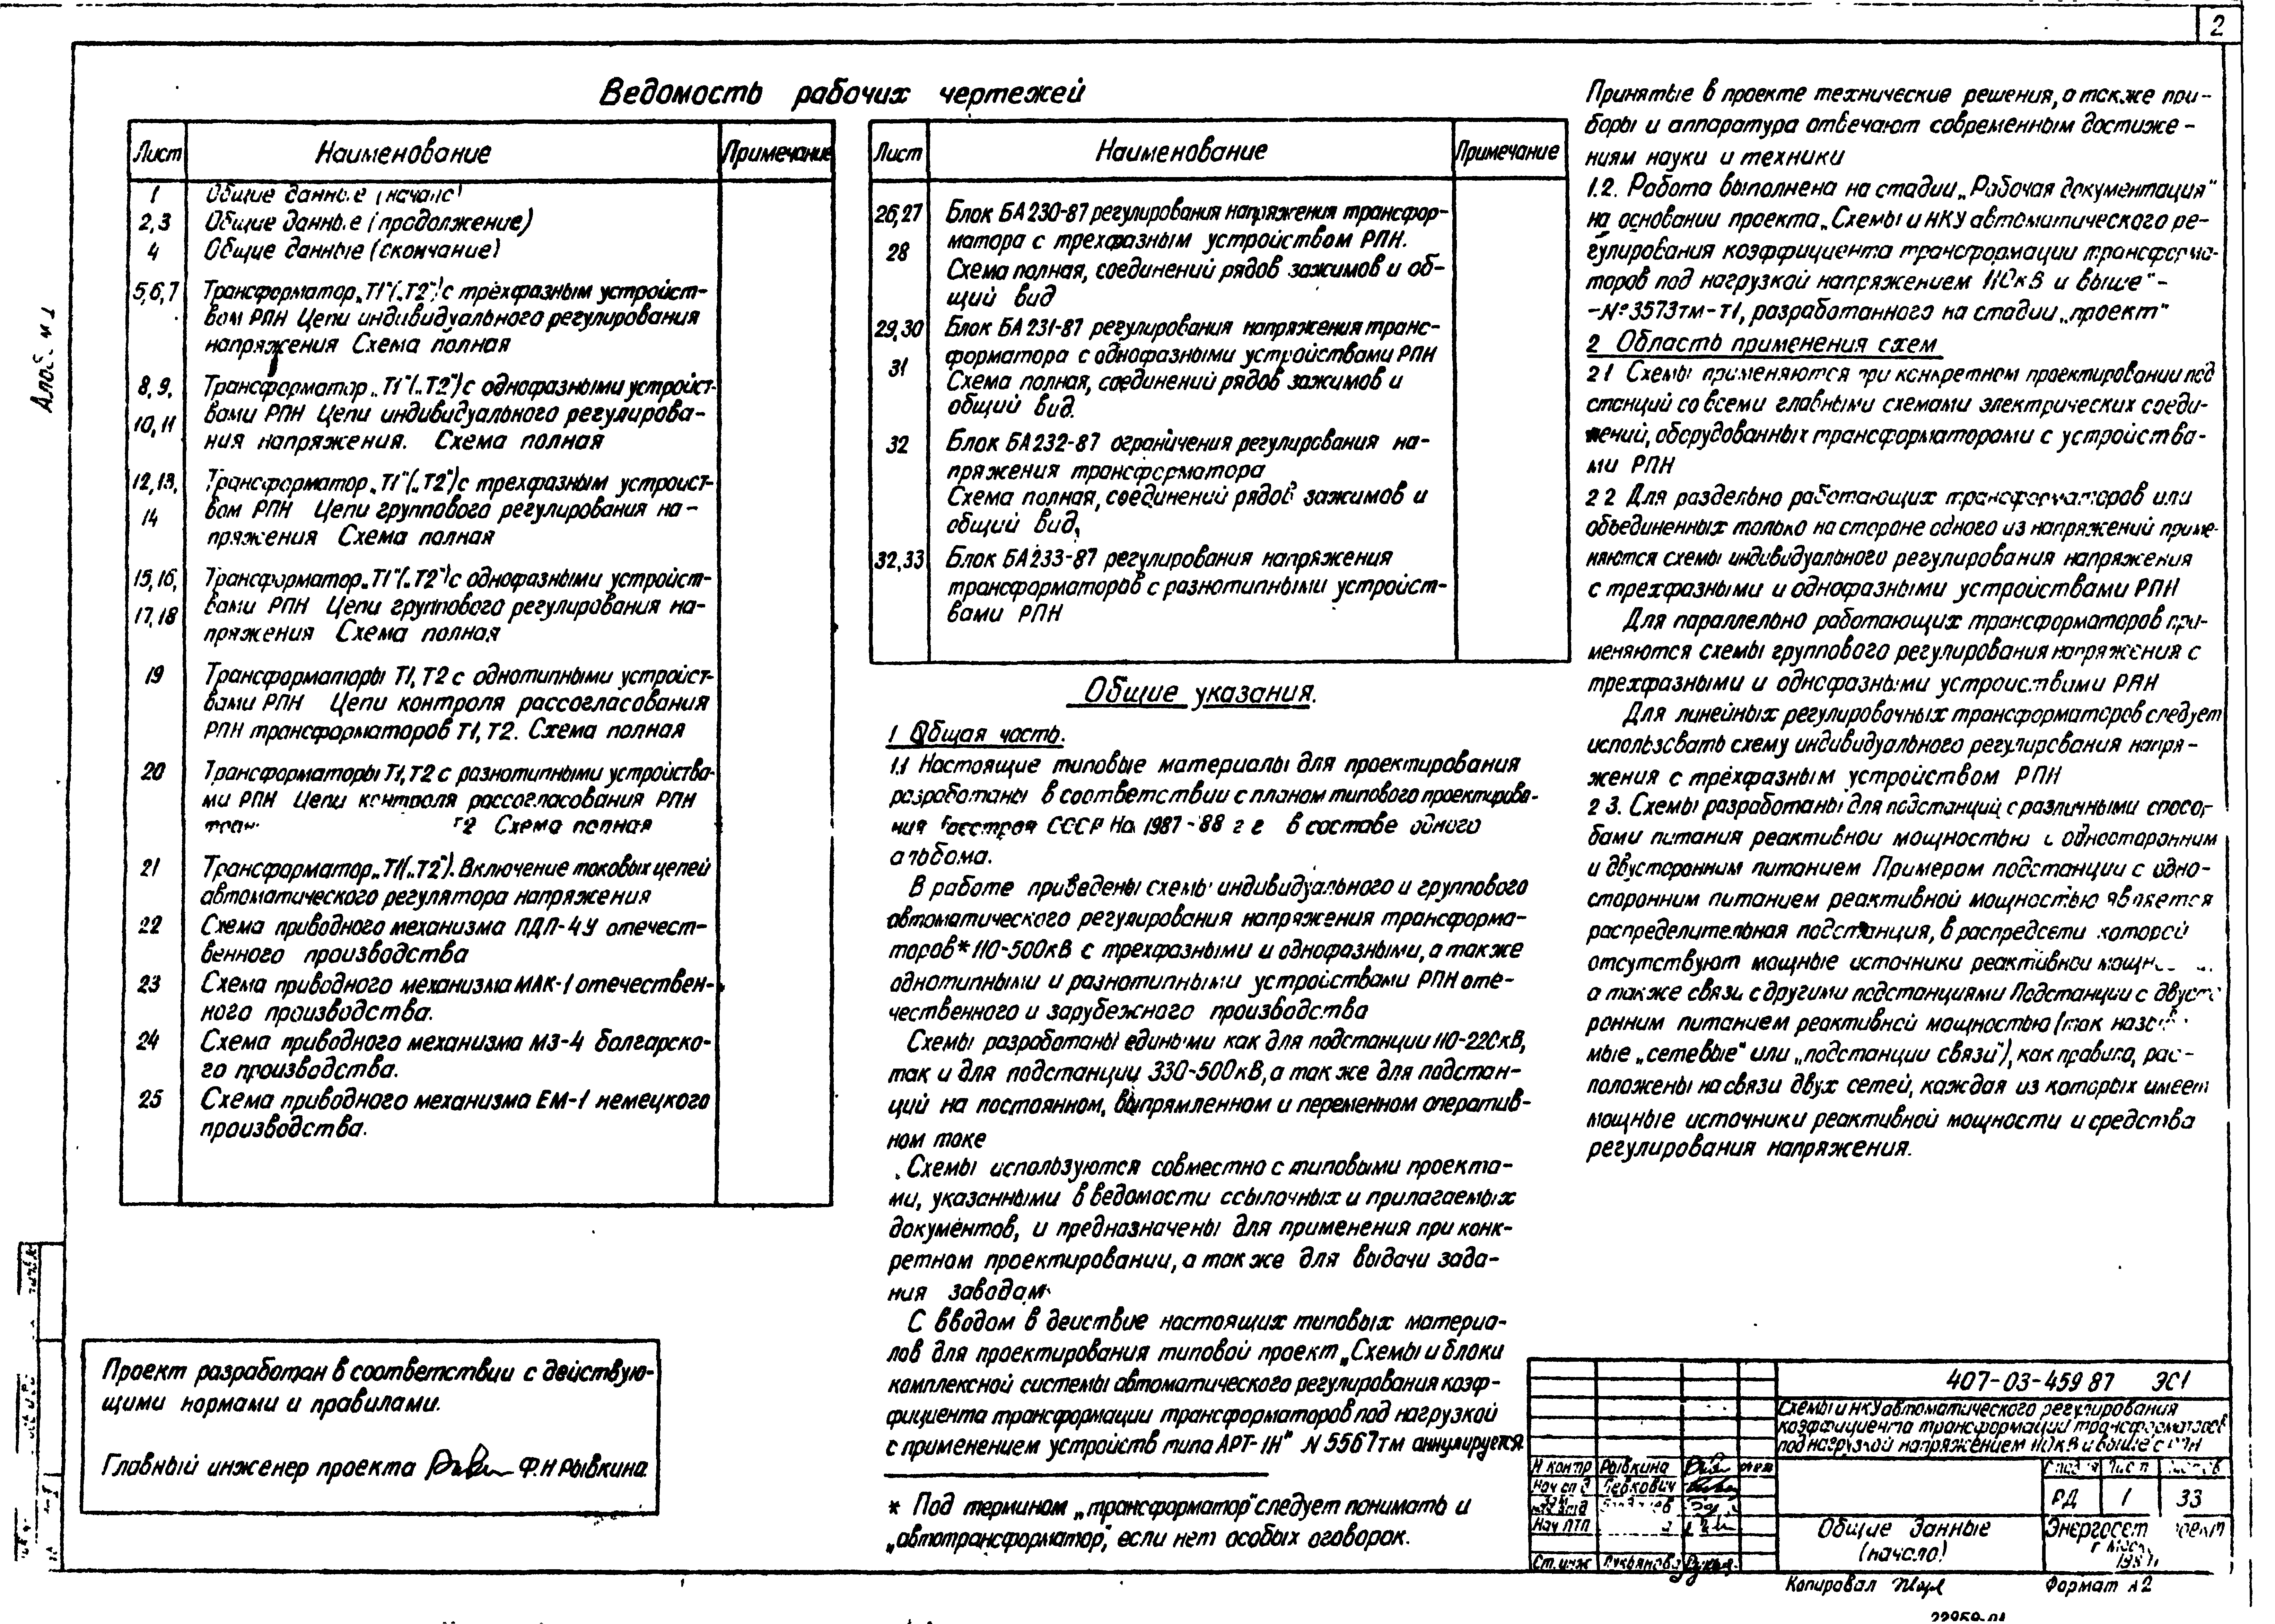 2
Альбом 1
Ведомость рабочих чертежей
Лист Наименование Примечание
1 Общие данные (начало)
2,3 Общие данные (продолжение)
4 Общие данные (окончание)
5,6,7 Трансформатор „Т1"(„Т2") с трёхфазным устройст-
вом РПН Цепи индивидуального регулирования
напряжения Схема полная
8,9, Трансформатор „Т1"(„Т2") с однофазными устройст-
10,11 вами РПН Цепи индивидуального регулирова-
ния напряжения. Схема полная
12,13, Трансформатор „Т1"(„Т2") с трехфазным устройст-
14 вом РПН Цепи группового регулирования на-
пряжения Схема полная
15,16, Трансформатор „Т1"(„Т2") с однофазными устройст-
17,18 вами РПН Цепи группового регулирования на-
пряжения Схема полная
19 Трансформаторы Т1, Т2 с однотипными устройст-
вами РПН Цепи контроля рассогласования
РПН трансформаторов Т1, Т2. Схема полная
20 Трансформаторы Т1, Т2 с разнотипными устройства-
ми РПН Цепи контроля рассогласования РПН
Схема полная
21 Трансформатор „Т1(„Т2"). Включение токовых цепей
автоматического регулятора напряжения
22 Схема приводного механизма ПДП-4У отечест-
венного производства
23 Схема приводного механизма МАК-1 отечествен-
ного производства.
24 Схема приводного механизма МЗ-4 болгарско-
го производства.
25 Схема приводного механизма ЕМ-1 немецкого
производства.
Проект разработан в соответствии с действую-
щими нормами и правилами.
Главный инженер проекта Ф.Н Рывкина
Лист Наименование Примечание
26,27 Блок БА 230-87 регулирования напряжения трансфор-
28 матора с трехфазным устройством РПН.
Схема полная, соединений рядов зажимов и об-
щий вид
29,30 Блок БА 231-87 регулирования напряжения транс-
форматора с однофазными устройствами РПН
31 Схема полная, соединений рядов зажимов и
общий вид.
32 Блок БА 232-87 ограничения регулирования на-
пряжения трансформатора
Схема полная, соединений рядов зажимов и
общий вид,
32,33 Блок БА 233-87 регулирования напряжения
трансформаторов с разнотипными устройст-
вами РПН
Общие указания.
1 Общая часть.
1.1 Настоящие типовые материалы для проектирования
разработаны в соответствии с планом типового проектирова-
ния Госстроя СССР на 1987-88 г г в составе одного
альбома.
В работе приведены схемы индивидуального и группового
автоматического регулирования напряжения трансформа-
торов* 110-500кВ с трехфазными и однофазными, а также
однотипными и разнотипными устройствами РПН оте-
чественного и зарубежного производства
Схемы разработаны едиными как для подстанции 110-220кВ,
так и для подстанции 330-500кВ, а также для подстан-
ций на постоянном, выпрямленном и переменном оператив-
ном токе
Схемы используются совместно с типовыми проекта-
ми, указанными в ведомости ссылочных и прилагаемых
документов, и предназначены для применения при конк-
ретном проектировании, а также для выдачи зада-
ния заводам.
С вводом в действие настоящих типовых материа-
лов для проектирования типовой проект „Схемы и блоки
комплексной системы автоматического регулирования коэф-
фициента трансформации трансформаторов под нагрузкой
с применением устройств типа АРТ-1Н" N 5567тм аннулируется.
* Под термином „трансформатор" следует понимать и
„автотрансформатор", если нет особых оговорок.
Принятые в проекте технические решения, а также при-
боры и аппаратура отвечают современным достиже-
ниям науки и техники
1.2. Работа выполнена на стадии „Рабочая документация"
на основании проекта „Схемы и НКУ автоматического ре-
гулирования коэффициента трансформации трансформа-
торов под нагрузкой напряжением 110кВ и выше"-
-№3573тм-Т1, разработанного на стадии „проект"
2 Область применения схем
2 1 Схемы применяются при конкретном проектировании под
станций со всеми главными схемами электрических соеди-
нений, оборудованных трансформаторами с устройства-
ми РПН
2 2 Для раздельно работающих трансформаторов или
объединенных только на стороне одного из напряжений приме-
няются схемы индивидуального регулирования напряжения
с трехфазными и однофазными устройствами РПН
Для параллельно работающих трансформаторов при-
меняются схемы группового регулирования напряжения с
трехфазными и однофазными устройствами РПН
Для линейных регулировочных трансформаторов следует
использовать схему индивидуального регулирования напря-
жения с трёхфазным устройством РПН
2 3. Схемы разработаны для подстанций с различными спосо-
бами питания реактивной мощностью с односторонним
и двусторонним питанием Примером подстанции с одно-
сторонним питанием реактивной мощностью является
распределительная подстанция, в распредсети которой
отсутствуют мощные источники реактивной
а также связи с другими подстанциями Подстанции с двусто
ронним питанием реактивной мощностью (так называе-
мые „сетевые" или „подстанции связи"), как правило, рас-
положены на связи двух сетей, каждая из которых имеет
мощные источники реактивной мощности и средства
регулирования напряжения.
407-03-459 87 ЭС1
Схемы и НКУ автоматического регулирования
коэффициента трансформации трансформаторов
под нагрузкой напряжением 110кВ и выше с РПН
Н контр Рывкина
Нач отд
Нач ПТП
Ст. инж Лукьянова
Стадия Лист Листов
РД 1 33
Общие данные
(начало)
Копировал
Формат А2
22959-01